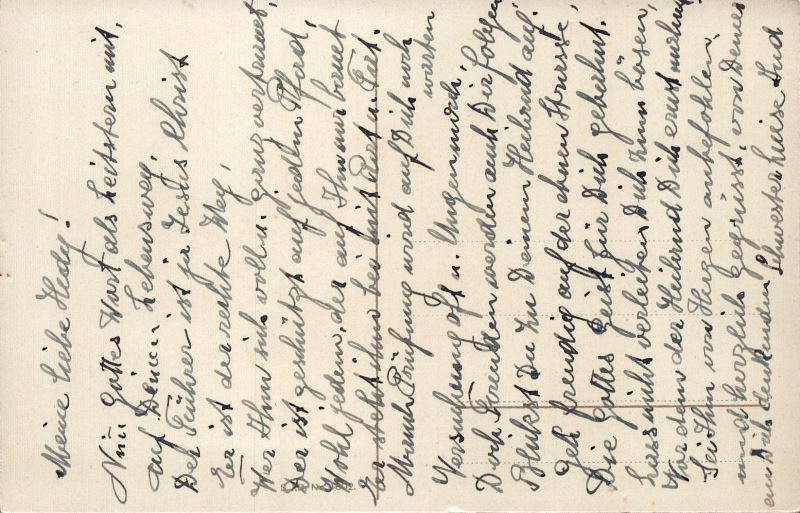 Meine liebe Hedy!
Nim Gottes Wort als Leitstern mit,
auf Deinen Lebensweg,
Der Führer ist ja Jesus Christ
Er ist der rechte Weg!
Wer Ihm sich voll u. ganz vertrauet,
Der ist geschützt auf jedem Pfad,
Wohl jedem, der auf Ihm nur bauet
Er steht ihm bei mit Wort u. Tat.
Manch Prüfung wird auf Dich noch
warten
Versuchung oft u. Ungemach,
Doch Freuden werden auch Dir folgen
Blickst Du zu Deinem Heiland auf.
Geh freudig auf der Strasse,
Die Gottes Geist für Dich gebahnt.
Lass nicht verleiten Dich zum bösen,
Vor dem der Heiland Dich ernst mahnt
Sei Ihm von Herzen anbefohlen,
und herzlich gegrüsst, von Deiner
an Dich denkenden Schwester Luise